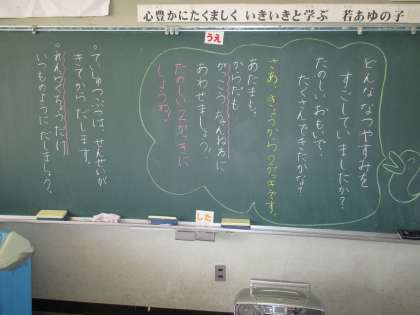 心豊かにたくましく いきいきと学ぶ 若あゆの子
うえ
どんななつやすみを
すごしていましたか？
たのしいおもいで、
たくさんできたかな？
さあ、きょうから２がっきです。
あたまも、
からだも
がっこう
あわせましょう。
たのしい２がっきに
しようね！
○ていしゅつぶつは、せんせいが
きてから だします。
○れんらくちょうだけ
いつものように だしましょう。
した